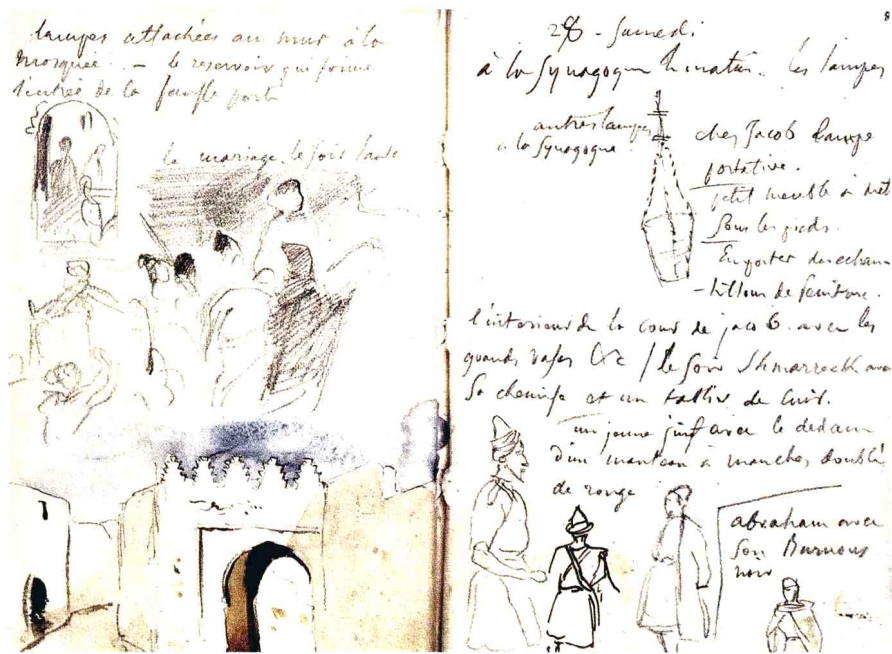 lampes attachées au mur à la
mosquée. – le reservoir qui forme
l'entrée de la
le mariage. le soir
8
28 - Samedi
à la Synagogue le matin. les lampes
autres lampes
à la Synagogue
chez Jacob lampe
portative.
petit meuble à
sous les pieds.
Emporter des echan-
-tillons de
l'interieur de la cour de jacob. avec les
grands vases &c / le soir avec
Sa chemise et un tablier de cuir.
un jeune juif avec le dedans
d'un manteau à manches doublé
de rouge
abraham avec
son Burnous
noir